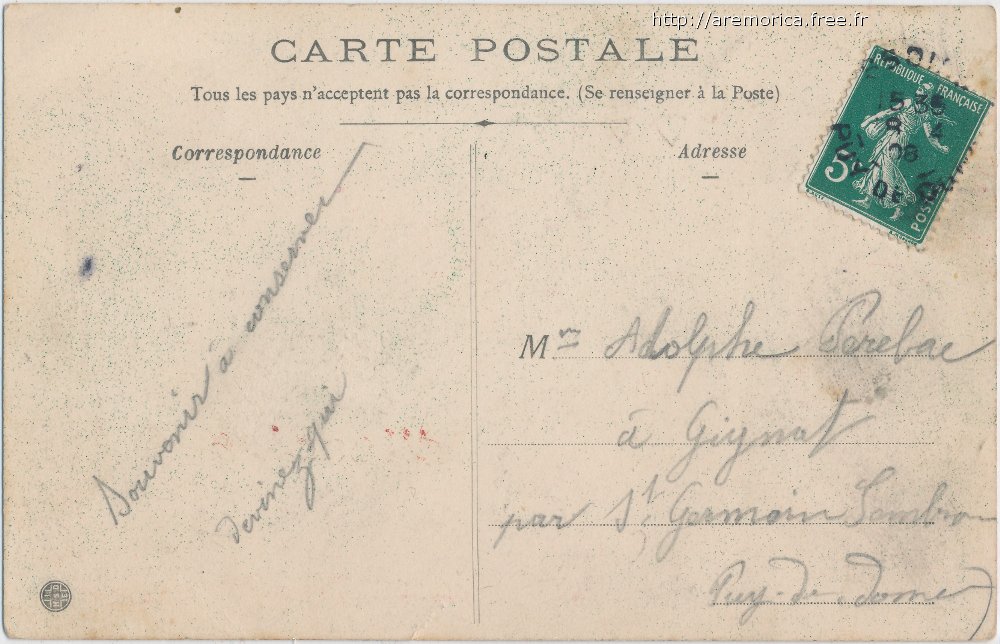 http://aremorica.free.fr
CARTE POSTALE
Tous les pays n'acceptent pas la correspondance. (Se renseigner à la Poste)
Correspondance
Souvenir a conserver
devinez qui
Adresse
RÉPUBLIQUE FRANÇAISE
5c
POSTES
15 35
8 4
08
PUY-DE-D
Mr Adolphe Parebac
à Gignat
par St Germain Lembron
Puy-de-dome